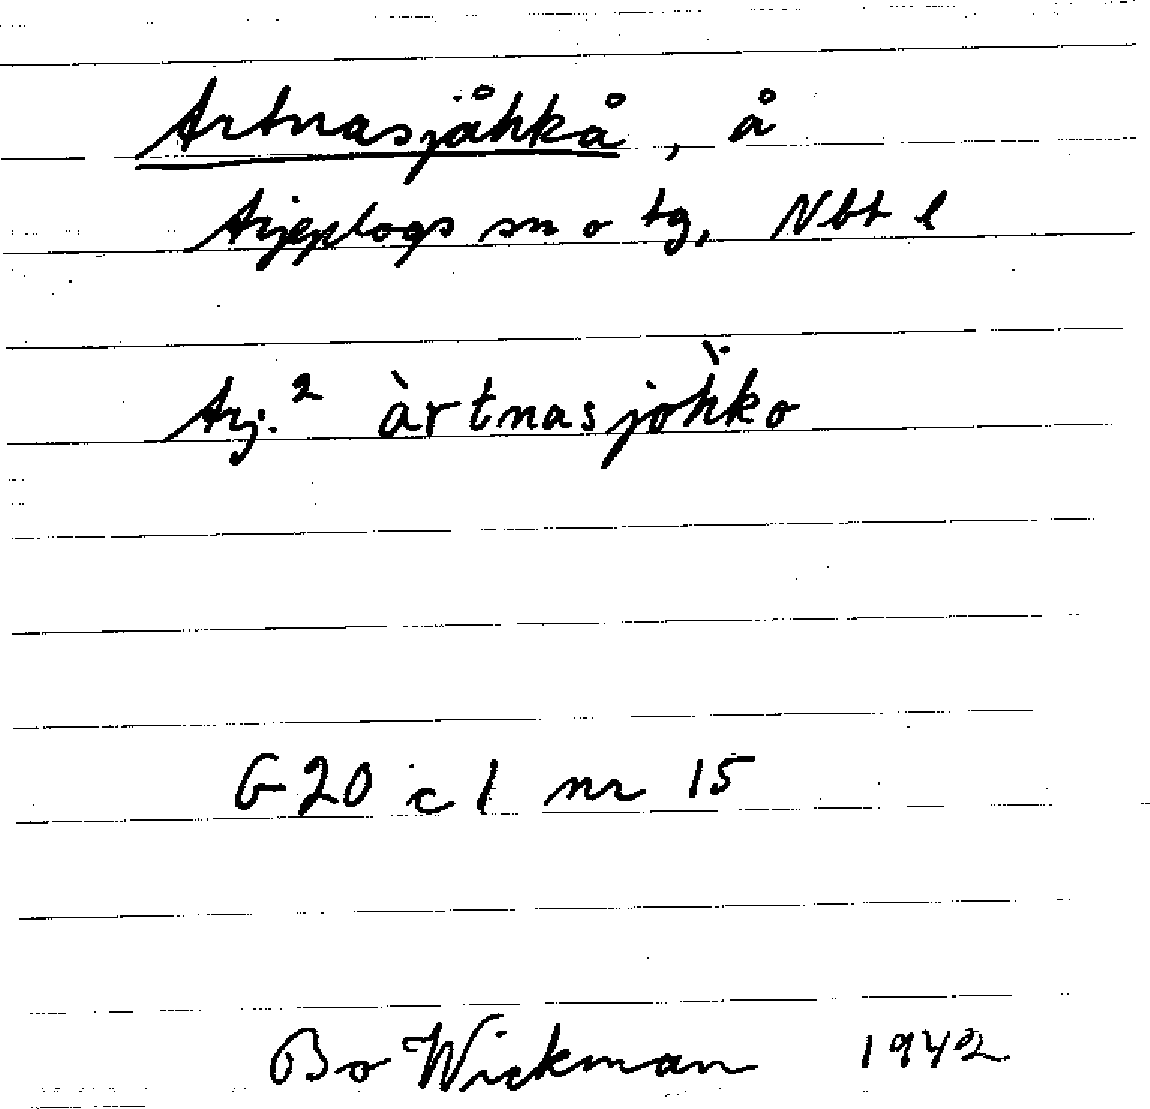 Artnasjåhkå, å
Arjeplogs sn o tg, Nbt l
Arj.² àrtnasjòhko
G 20 c 1 nr 15
Bo Wickman 1942